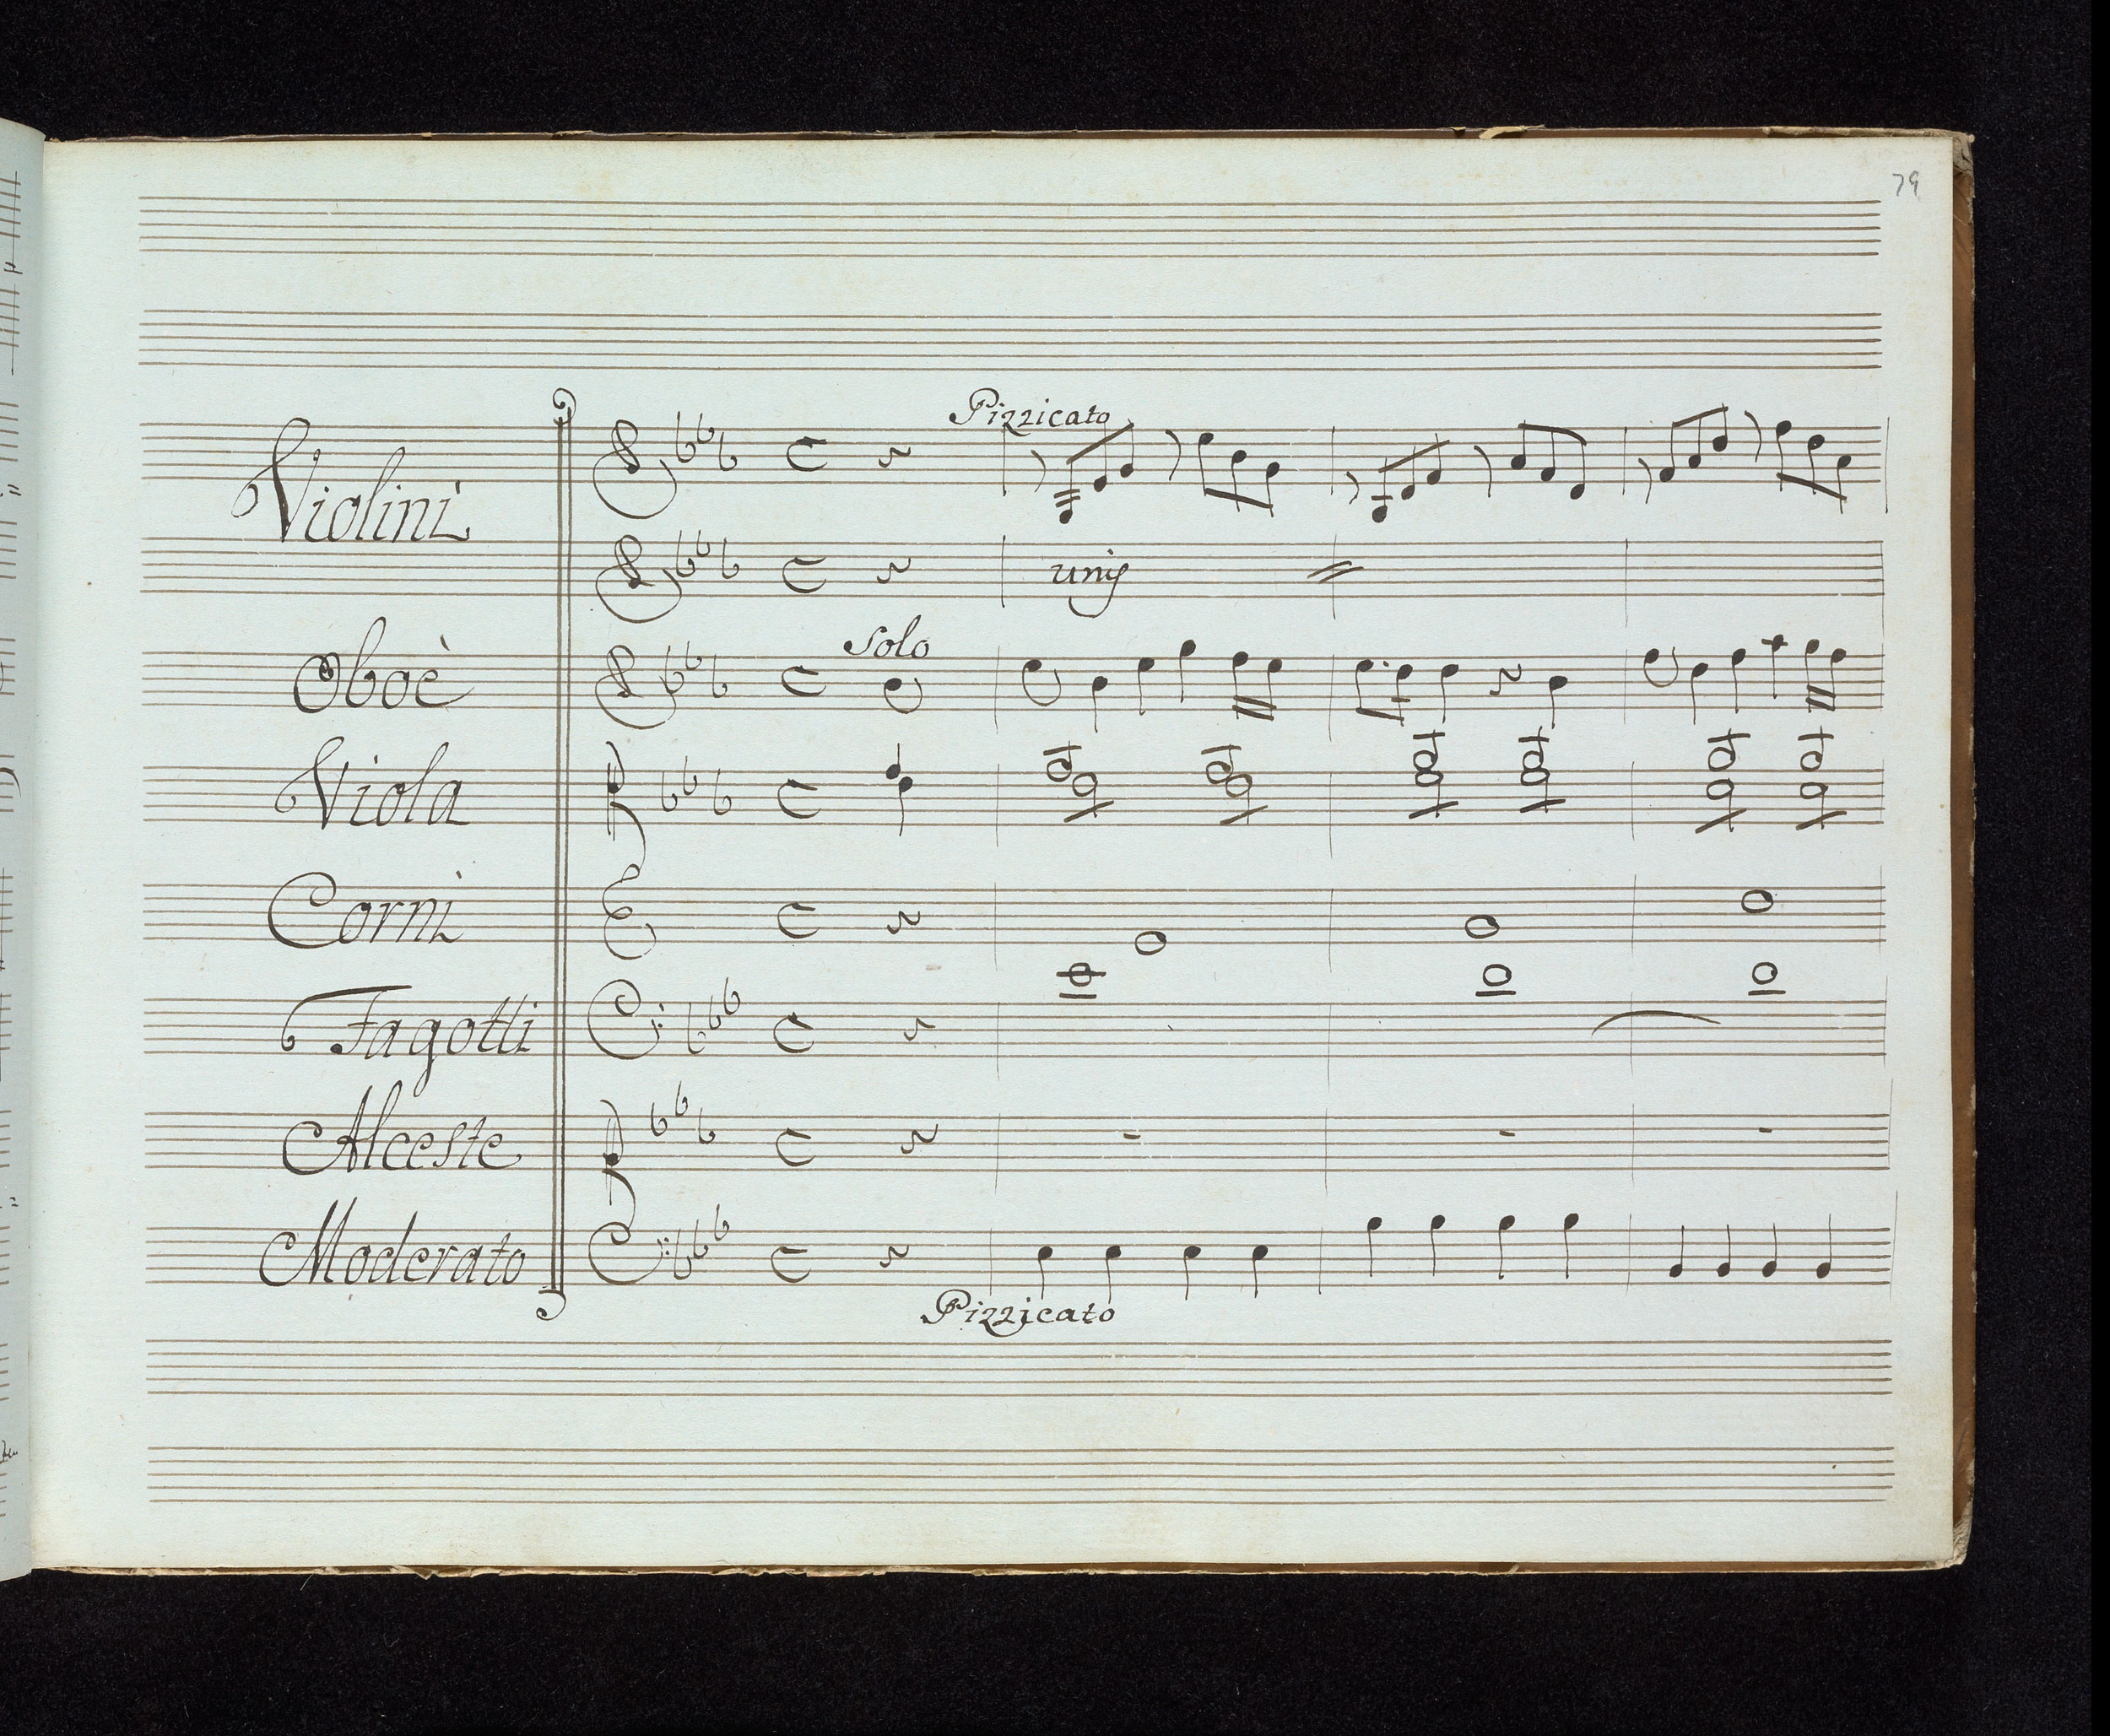 79
Pizzicato
Violini
unis
Solo
Oboè
Viola
Corni
Fagotti
Alceste
Moderato
Pizzicato